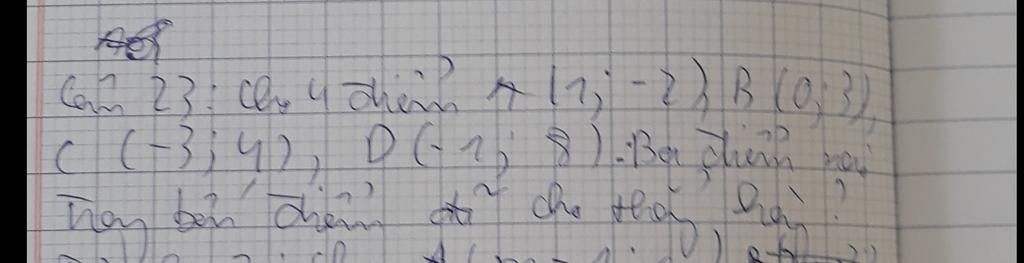 Câu 23: Cho 4 điểm A (1; -2), B (0; 3),
C (-3; 4), D (-1; 8). Ba điểm nào
trong bốn điểm đã cho thẳng hàng?